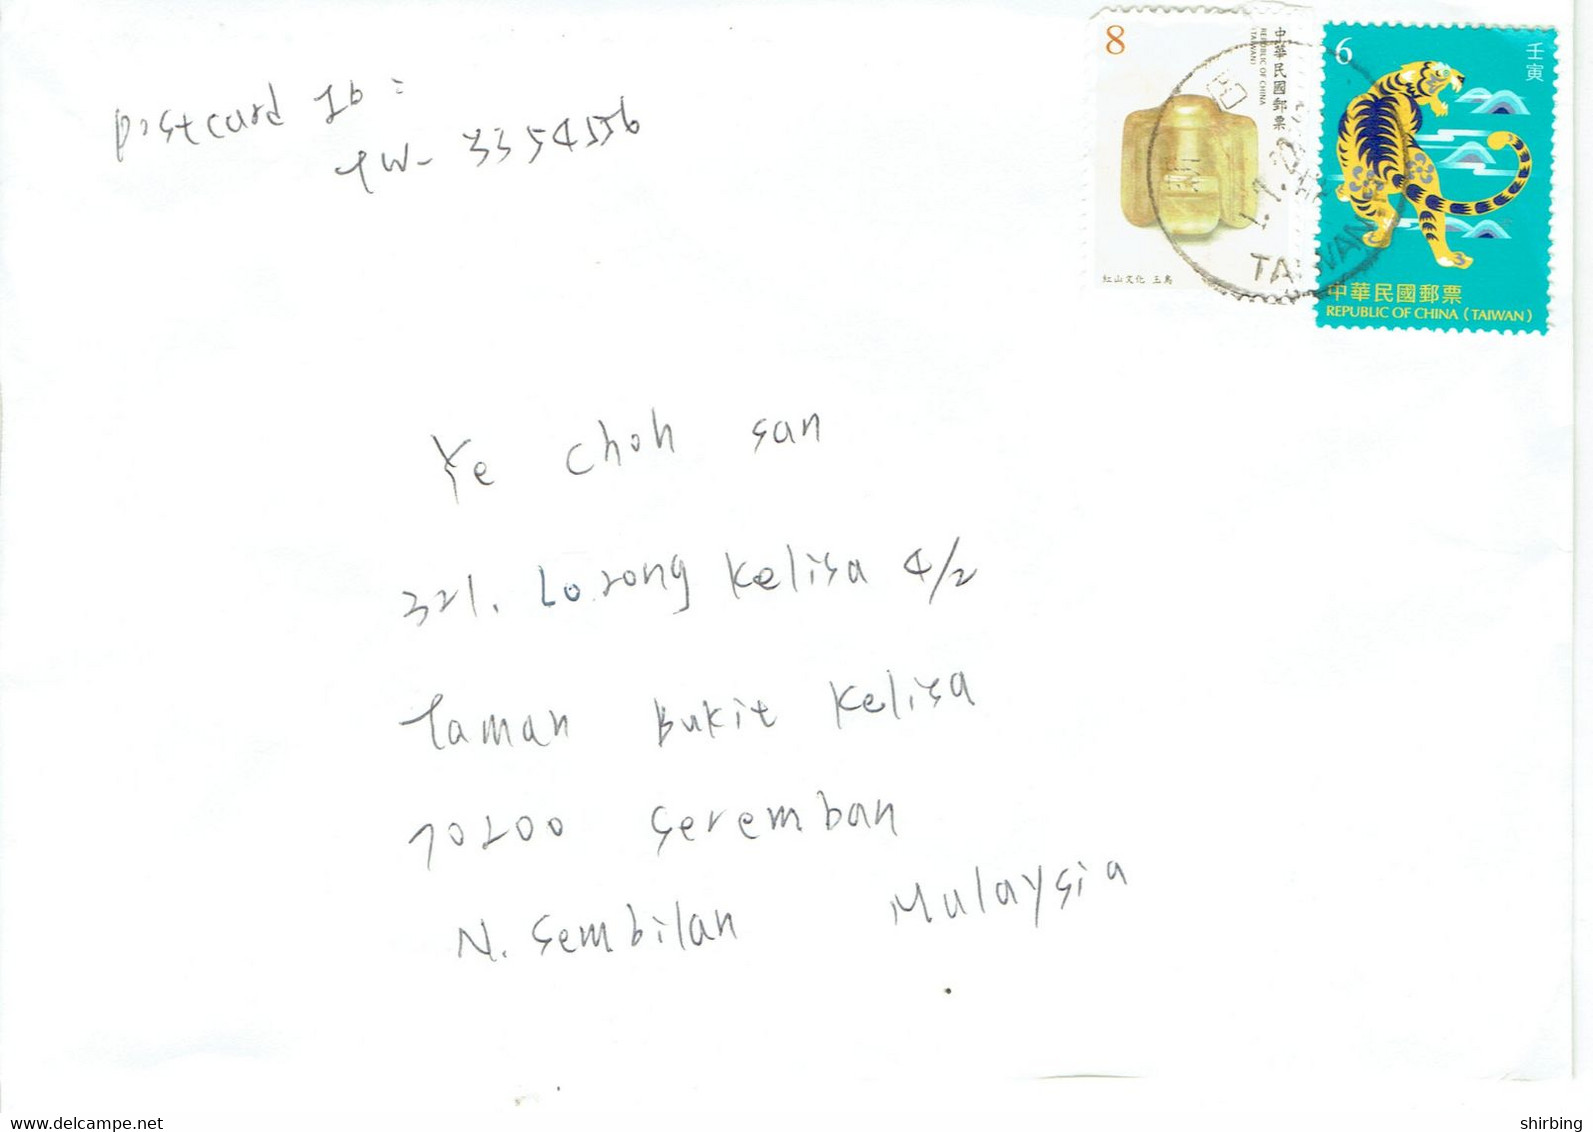 8
中華民國郵票
REPUBLIC OF CHINA
(TAIWAN)
紅山文化 玉鳥
6
壬寅
中華民國郵票
REPUBLIC OF CHINA (TAIWAN)
TAIWAN
Postcard ID:
TW- 3354556
Ye Choh San
321. Lorong Kelisa 4/2
Taman Bukit Kelisa
70200 Seremban
N. Sembilan Malaysia
www.delcampe.net
shirbing